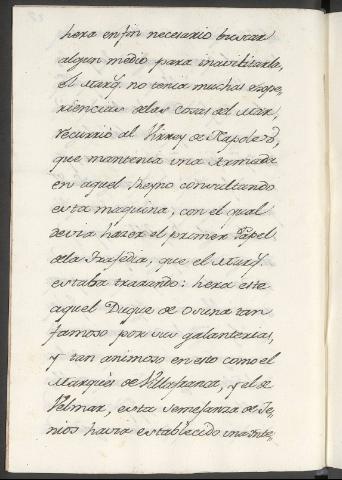 hera en fin necesario buscar
algun medio para inavilitarle,
el Marq. no tenia muchas expe,
riencias delas cosas del Mar,
recurrio al Virrey de Napoles,
que mantenia una Armada
en aquel Reyno consultando
esta maquina, con el qual
devia hazer el primer Papel
dela Trajedia, que el Marq.
estaba trazando: hera este
aquel Duque de Osuna tan
famoso por sus galanterias,
y tan animoso en esto como el
Marques de Villafranca, y el de
Velmar, esta semejanza de Je,
nios havia establecido una Inte,